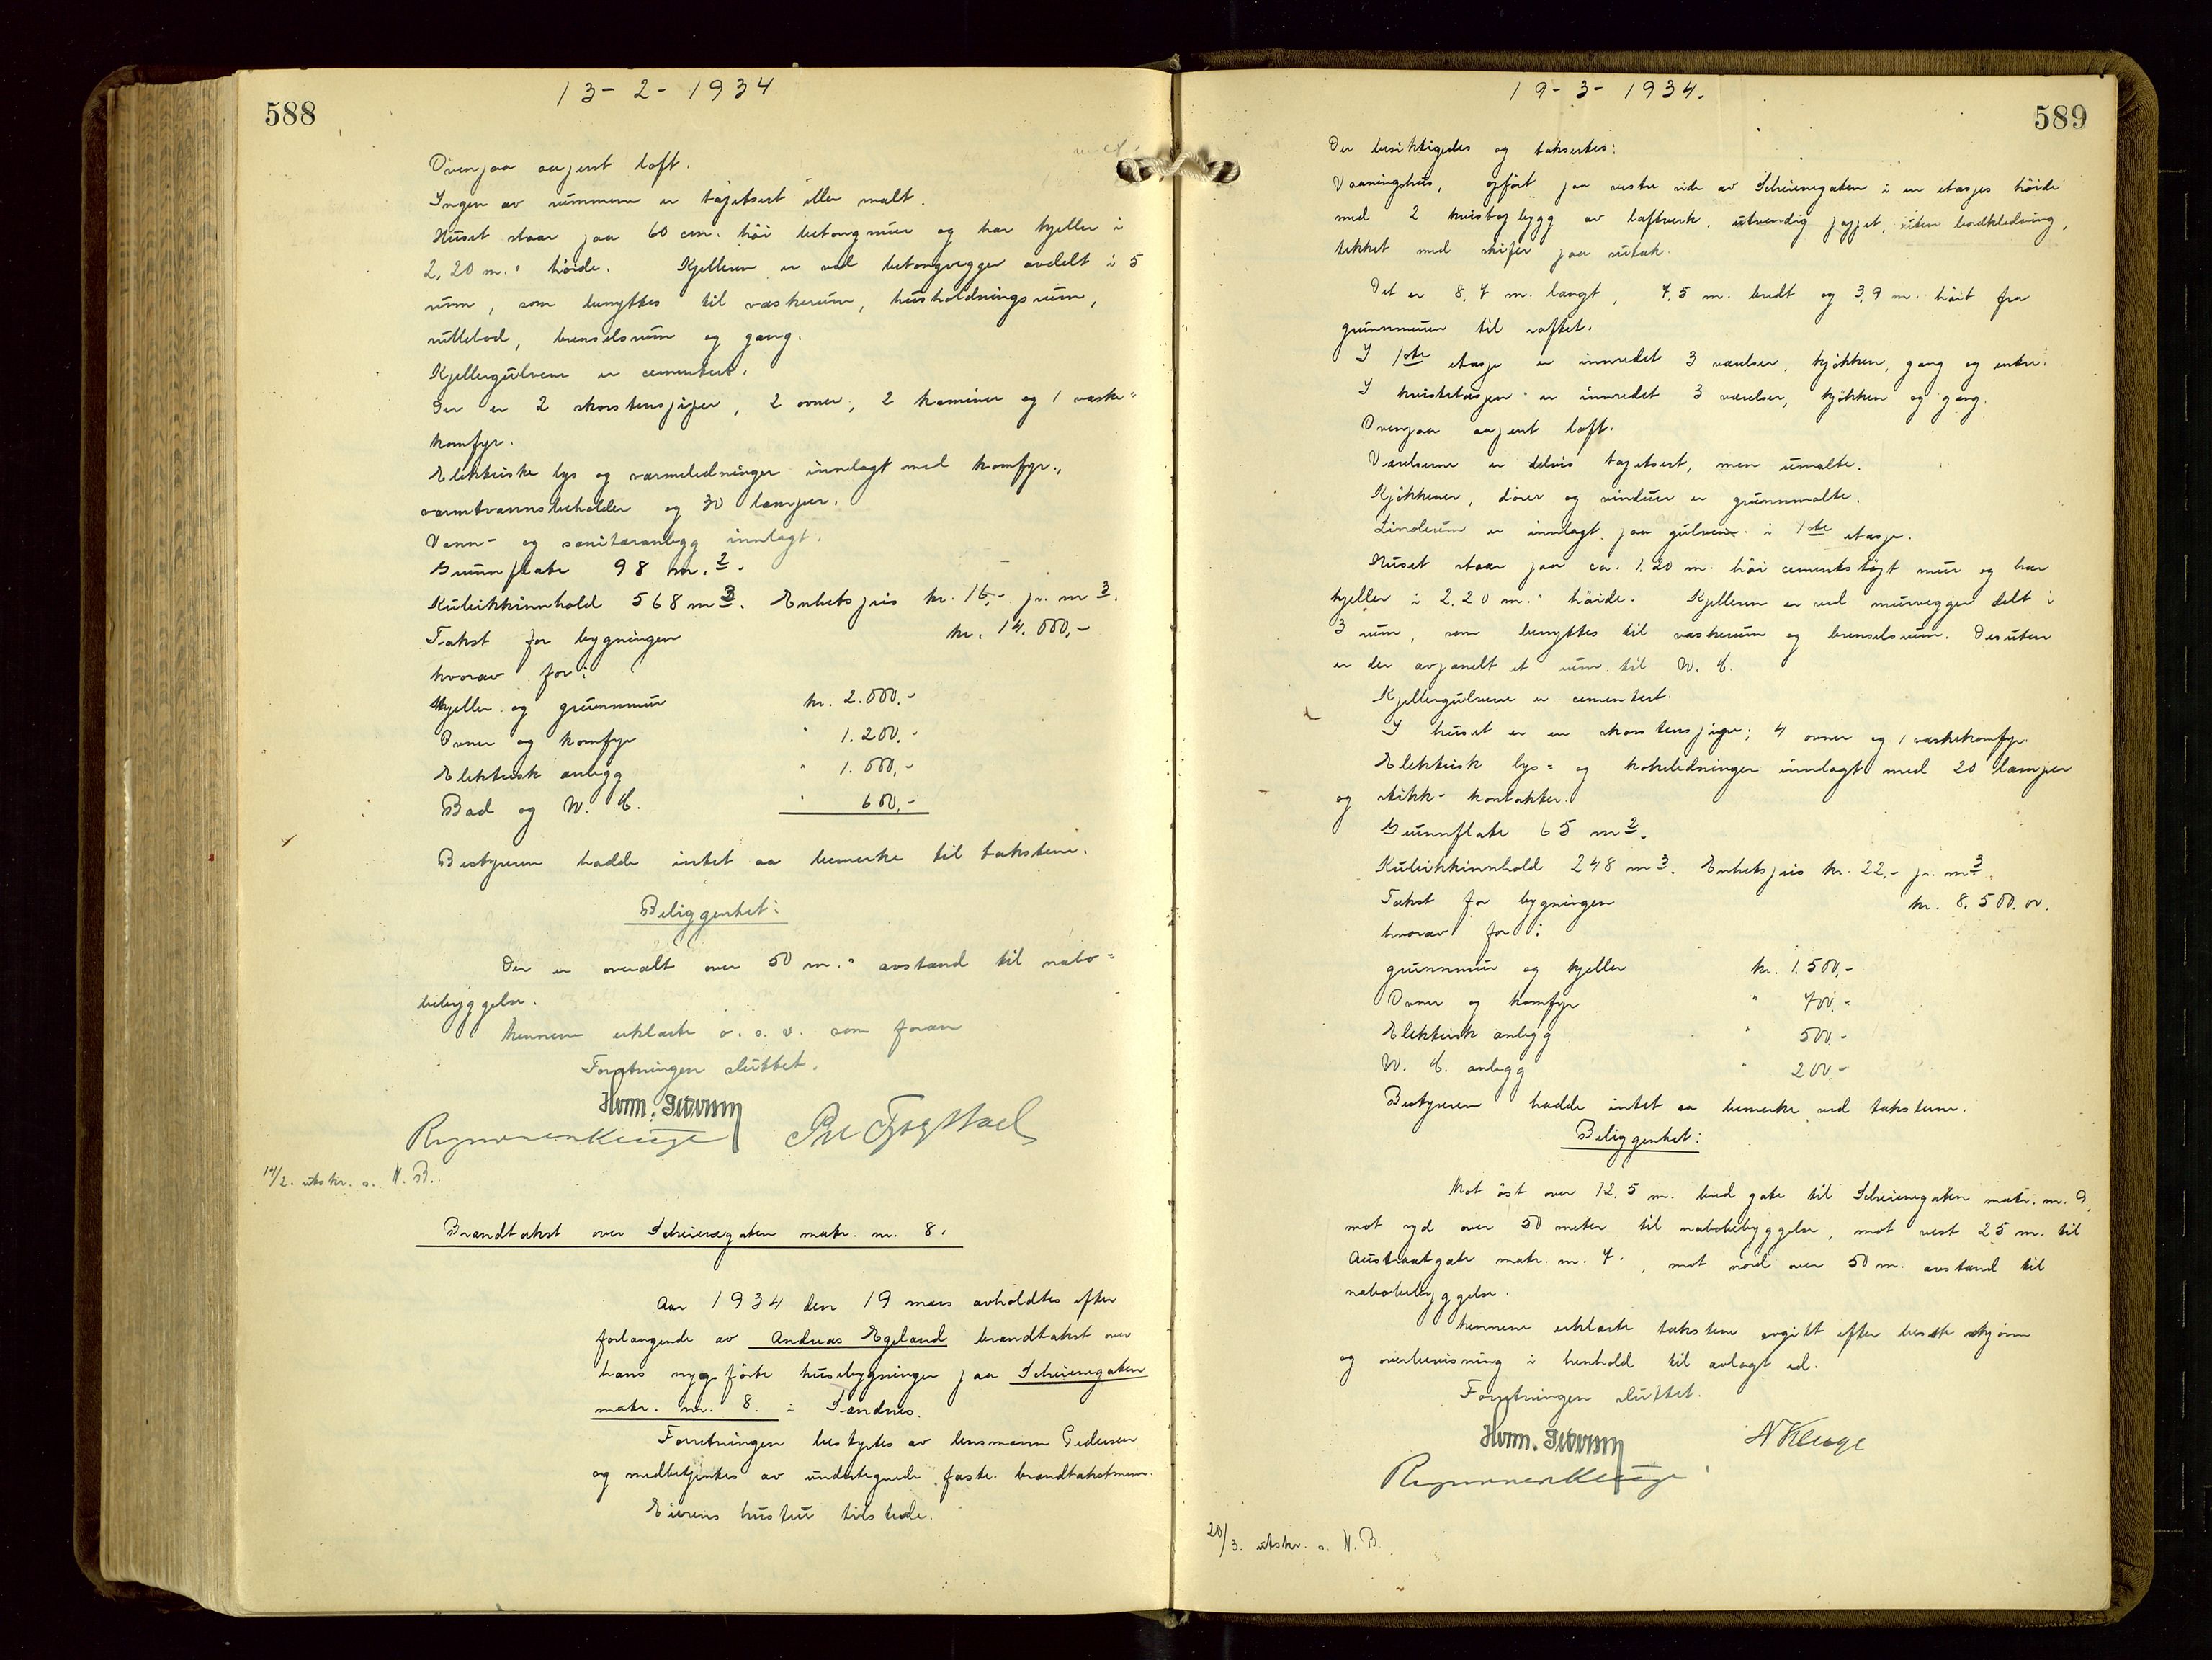 588
13-2-1934
Ovenpaa aapent loft.
Ingen av rummene er tapetsert eller malt.
Huset staar paa 60 cm. høi betongmur og har kjeller i
2,20 m.s høide. Kjelleren er ved betongvegger avdelt i 5
rum, som benyttes til vaskerum, husholdningsrum,
rullebod, brenselsrum og gang.
Kjellergulvene er cementert.
Der er 2 skorstenspiper, 2 ovner, 2 kaminer og 1 vaske=
komfyr.
Elektriske lys og varmeledninger innlagt med komfyr,
varmtvannsbeholder og 30 lamper.
Vann- og sanitæranlegg innlagt.
Grunnflate 98 m.2.
Kubikkinnhold 568 m3. Enhetspris kr. 16,- pr. m3.
Takst for bygningen kr. 14.000,-
hvorav for:
Kjeller og grunnmur kr. 2.000,-
Ovner og komfyr " 1.200,-
Elektrisk anlegg " 1.000,-
Bad og W. C. " 600,-
Bestyreren hadde intet aa bemerke til takstene.
Beliggenhet:
Der er overalt over 50 m.s avstand til nabo=
bebyggelse.
Mennene erklærte o. s. v. som foran
Forretningen sluttet.
14/2. utskr. s. N. B.
Brandtakst over Scheiesgaten matr. nr. 8.
Aar 1934 den 19 mars avholdtes efter
forlangende av Andreas Egeland brandtakst over
hans nyopførte husebygninger paa Scheiesgaten
matr. nr. 8. i Sandnes.
Forretningen bestyrtes av lensmann Pedersen
og medbetjentes av undertegnede faste brandtakstmenn.
Eierens hustru tilstede.
589
19-3-1934.
Der besiktigedes og taksertes:
Vaaningshus, opført paa vestre side av Scheiesgaten i en etasjes høide
med 2 kvistopbygg av laftverk, utvendig pappet, uten bordkledning,
tekket med skifer paa sutak.
Det er 8,7 m. langt, 7,5 m. bredt og 3,9 m. høit fra
grunnmuren til raftet.
I 1ste etasje er innredet 3 værelser, kjøkken, gang og entre.
I kvistetasjen er innredet 3 værelser, kjøkken og gang.
Ovenpaa aapent loft.
Værelsene er delvis tapetsert, men umalte.
Kjøkkener, dører og vinduer er grunnmalte.
Linoleum er innlagt paa gulvene i 1ste etasje.
Huset staar paa ca. 1.20 m. høi cementstøpt mur og har
kjeller i 2.20 m.s høide. Kjelleren er ved murvegger delt i
3 rum, som benyttes til vaskerum og brenselsrum. Desuten
er der avpanelt et rum til W. C.
Kjellergulvene er cementert.
I huset er en skorstenspipe; 4 ovner og 1 vaskekomfyr.
Elektrisk lys= og kokeledninger innlagt med 20 lamper
og stikk-kontakter.
Grunnflate 65 m2.
Kubikkinnhold 248 m3. Enhetspris kr. 22,- pr. m3.
Takst for bygningen kr. 8.500.00.
hvorav for:
grunnmur og kjeller kr. 1.500,-
Ovner og komfyr " 700,-
Elektrisk anlegg " 500,-
W. C. anlegg " 200,-
Bestyreren hadde intet aa bemerke ved takstene.
Beliggenhet:
Mot øst over 12,5 m. bred gate til Scheiesgaten matr. nr. 9,
mot syd over 50 meter til nabobebyggelse, mot vest 25 m. til
Austraatgate matr. nr. 7., mot nord over 50 m. avstand til
nabobebyggelse.
Mennene erklærte takstene avgitt efter beste skjønn
og overbevisning i henhold til avlagt ed.
Forretningen sluttet.
20/3. utskr. s. N. B.